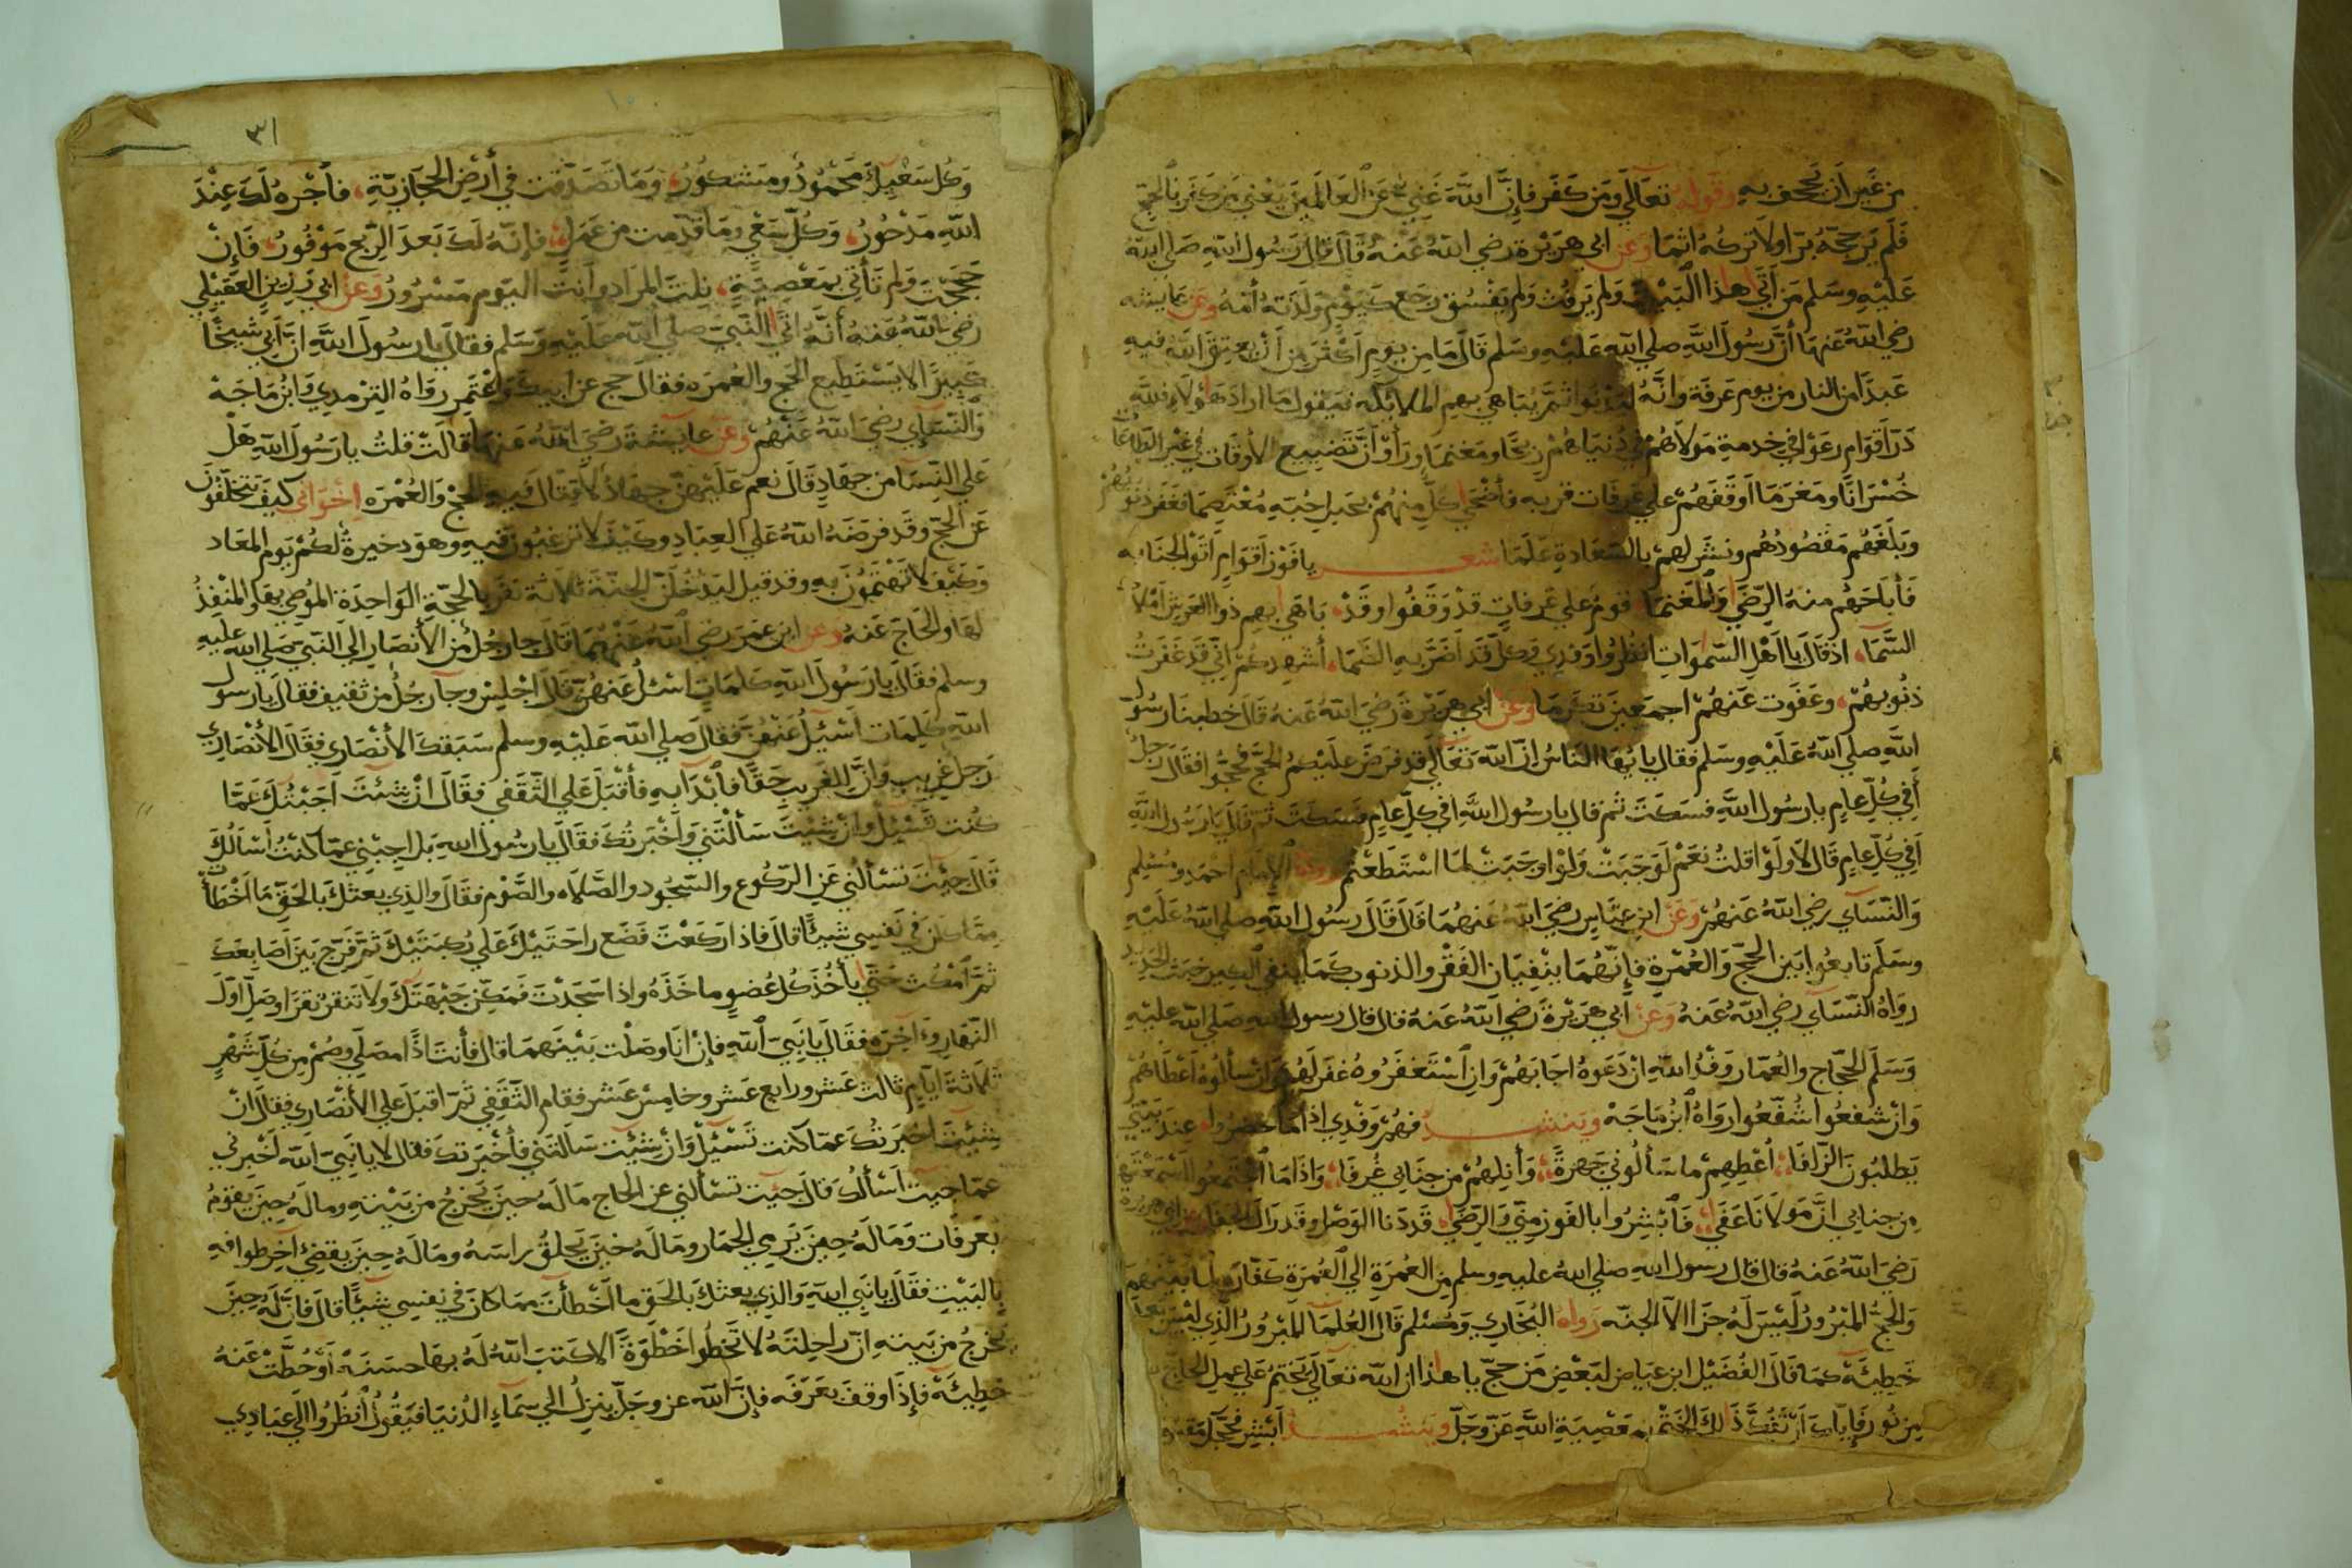 من غير ان تجحف به وقوله تعالي ومن كفر فإن الله غني عن العالمين يعني من كفر بالحج
فلم ير حجه برا ولا تركه اثما وعن ابي هريرة رضي الله عنه قال قال رسول الله صلى الله
عليه وسلم من اتى هذا البيت ولم يرفث ولم يفسق رجع كيوم ولدته أمه وعن عايشه
رضي الله عنها أن رسول الله صلي الله عليه وسلم قال ما من يوم أكثر من أن يعتق الله فيه
عبدا من النار من يوم عرفة وانه ليدنوا ثم يباهي بهم الملائكه فيقول ما اراد هاولاء فلله
در اقوام رغوا في خدمة مولاهم في دنياهم ربحا ومغنما وراوا أن تضييع الأوقات في غير الطاعات
خسرانا ومغرما اوقفهم علي عرفات قربه فأضحي كل منهم بحبل حبه معتصما فغفر ذنوبهم
وبلغهم مقصودهم ونشر لهم بالسعادة علما شعر يا فوز اقوام اتوا لجنابه
فأباحهم منه الرضي والمغنما قوم علي عرفات قد وقفوا وقد باهي بهم ذوا العرش املاك
السما اذ قال يا اهل السموات انظروا وفدي وكل قد اضر به الظما أشهدكم اني قد غفرت
ذنوبهم وعفوت عنهم اجمعين تكرما وعن ابي هريرة رضي الله عنه قال خطبنا رسول
الله صلي الله عليه وسلم فقال يايها الناس ان الله تعالي قد فرض عليكم الحج فحجوا فقال رجل
أفي كل عام يا رسول الله فسكت ثم قال يا رسول الله افي كل عام فسكت ثم قال يا رسول الله
أفي كل عام قال لا ولو اقلت نعم لوجبت ولو اوجبت لما استطعتم رواه الإمام احمد ومسلم
والنسآي رضي الله عنهم وعن ابن عباس رضي الله عنهما قال قال رسول الله صلي الله عليه
وسلم تابعوا بين الحج والعمرة فإنهما ينفيان الفقر والذنوب كما ينفي الكير خبث الحديد
رواه النسآي رضي الله عنه وعن أبي هريرة رضي الله عنه قال قال رسول الله صلي الله عليه
وسلم الحجاج والعمار وفد الله ان دعوه اجابهم وان استغفروه غفر لهم وان سألوه اعطاهم
وان شفعوا شفعوا رواه ابن ماجة وينشد فهم وفدي اذا ما حضروا عند بيتي
يطلبون الزلفا أعطهم ما سألوني جهرة وأنلهم من جنابي غرفا واذا ما اجتمعوا اسمعتهم
من جنابي ان مولانا عفى فأبشروا بالفوز مني والرضي قد دنا الوصل وقد زال الجفا وعن ابي هريرة
رضي الله عنه قال قال رسول الله صلي الله عليه وسلم من العمرة الي العمرة كفارة لما بينهم
والحج المبرور ليس له جزا الا الجنه رواه البخاري ومسلم قال العلما المبرور الذي ليس بعده
خطيئة كما قال الفضيل ابن عياض لبعض من حج يا هذا ان الله تعالى يختم علي عمل الحاج
من نور فإياك أن تفك ذالك الختم بمعصية الله عز وجل وينشد أبشر فحجك
٣١
وكل سعيك محمود ومشكور وما تصدقت في أرض الحجازية فأجره لك عند
الله مدخور وكل سعي وما قدمت من عمل فإنه لك بعد الربح موفور فإن
حججت ولم تأتي بمعصية نلت المراد وانت اليوم مسرور وعن ابي رزين العقيلي
رضي الله عنه أنه اتى النبي صلى الله عليه وسلم فقال يا رسول الله ان أبي شيخا
كبيرا لا يستطيع الحج والعمره فقال حج عن ابيك واعتمر رواه الترمدي وابن ماجة
والنسآي رضي الله عنهم وعن عايشة رضي الله عنها قالت قلت يا رسول الله هل
علي النسا من جهاد قال نعم عليهن جهاد لا قتال فيه الحج والعمره اخواني كيف تتخلفون
عن الحج وقد فرضه الله علي العباد وكيف لا ترغبون فيه وهو دخيرة لكم يوم المعاد
وكيف لا تهتمون به وقد قيل ليدخلن الجنة ثلاثة نفر بالحجة الواحدة الموصي بها والمنفذ
لها والحاج عنه وعن ابن عمر رضي الله عنهما قال جا رجل من الأنصار إلي النبي صلي الله عليه
وسلم فقال يا رسول الله كلمات اسئل عنهن قال اجلس وجآ رجل من ثقيف فقال يا رسول
الله كليمات اسئيل عنهن فقال صلي الله عليه وسلم سبقك الأنصاري فقال الأنصاري
رجل غريب وان للغريب حقا فأبدا به فأقبل علي الثقفي فقال ان شئت اجبتك عما
كنت تسئيل وان شيت سألتني واخبرتك فقال يا رسول الله بل اجبني عما كنت اسالك
قال جيت تسألني عن الركوع والسجود والصلاه والصوم فقال والذي بعثك بالحق ما اخطأت
مما كان في نفسي شيئا قال فاذا ركعت فضع راحتيك علي ركبتيك ثم فرج بين اصابعك
ثم امكث حتي يأخذ كل عضو ماخذه واذا سجدت فمكن جبهتك ولا تنقر نقرا وصل اول
النهار وآخره فقال يا نبي الله فإن انا وصلت بينهما قال فأنت اذا مصلي وصم من كل شهر
ثلاثة ايام ثالث عشر ورابع عشر وخامس عشر فقام الثقفي ثم اقبل علي الأنصاري فقال ان
شئت اخبرتك عما كنت تسئيل وان شئيت سالتني فأخبرتك فقال لا يا نبي الله اخبرني
عما جيت اسألك قال جيت تسألني عن الحاج ما له حين يخرج من بيته وما له حين يقوم
بعرفات وما له حين يرمي الجمار وما له حين يحلق راسه وما له حين يقضي آخر طوافه
بالبيت فقال يا نبي الله والذي بعثك بالحق ما اخطأت مما كان في نفسي شيئا قال فان له حين
يخرج من بيته ان راحلته لا تخطوا خطوة الا كتب الله له بها حسنة أو حطت عنه
خطيئة فإذا وقف بعرفه فإن الله عز وجل ينزل الي سمآء الدنيا فيقول أنظروا الي عبادي